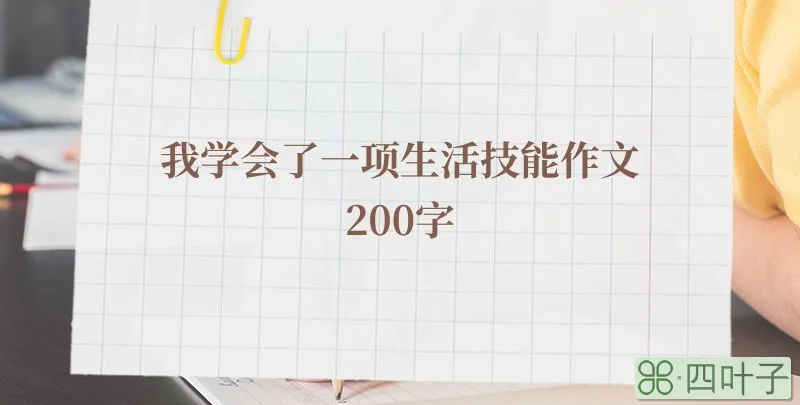 我学会了一项生活技能作文
200字
⌘·四叶子